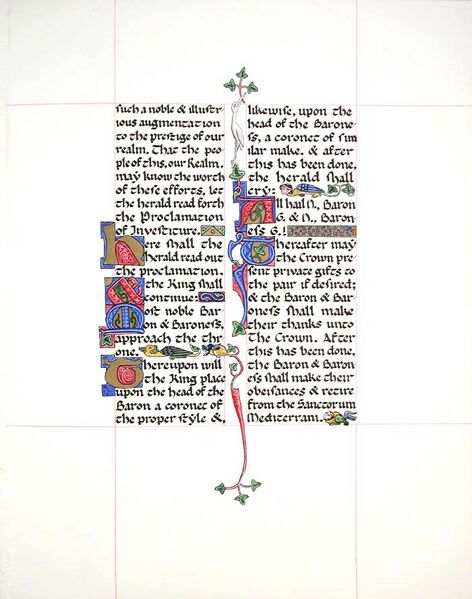 such a noble & illustr
ious augmentation
to the prestige of our
realm. That the peo
ple of this, our Realm,
may know the worth
of these efforts, let
the herald read forth
the Proclamation
of Investiture.
Here shall the
herald read out
the proclamation.
the King shall
continue:
Most noble Bar
on & Baroness,
approach the thr
one.
Thereupon will
the King place
upon the head of the
Baron a coronet of
the proper style &,
likewise, upon the
head of the Barone
ss, a coronet of sim
ilar make. & after
this has been done,
the herald shall
cry:
All hail N., Baron
G. & N., Baron
ess G.!
Thereafter may
the Crown pre
sent private gifts to
the pair if desired;
& the Baron & Bar
oness shall make
their thanks unto
The Crown. After
this has been done,
the Baron & Baron
ess shall make their
obeisances & retire
from the Sanctorum
Mediterrani.